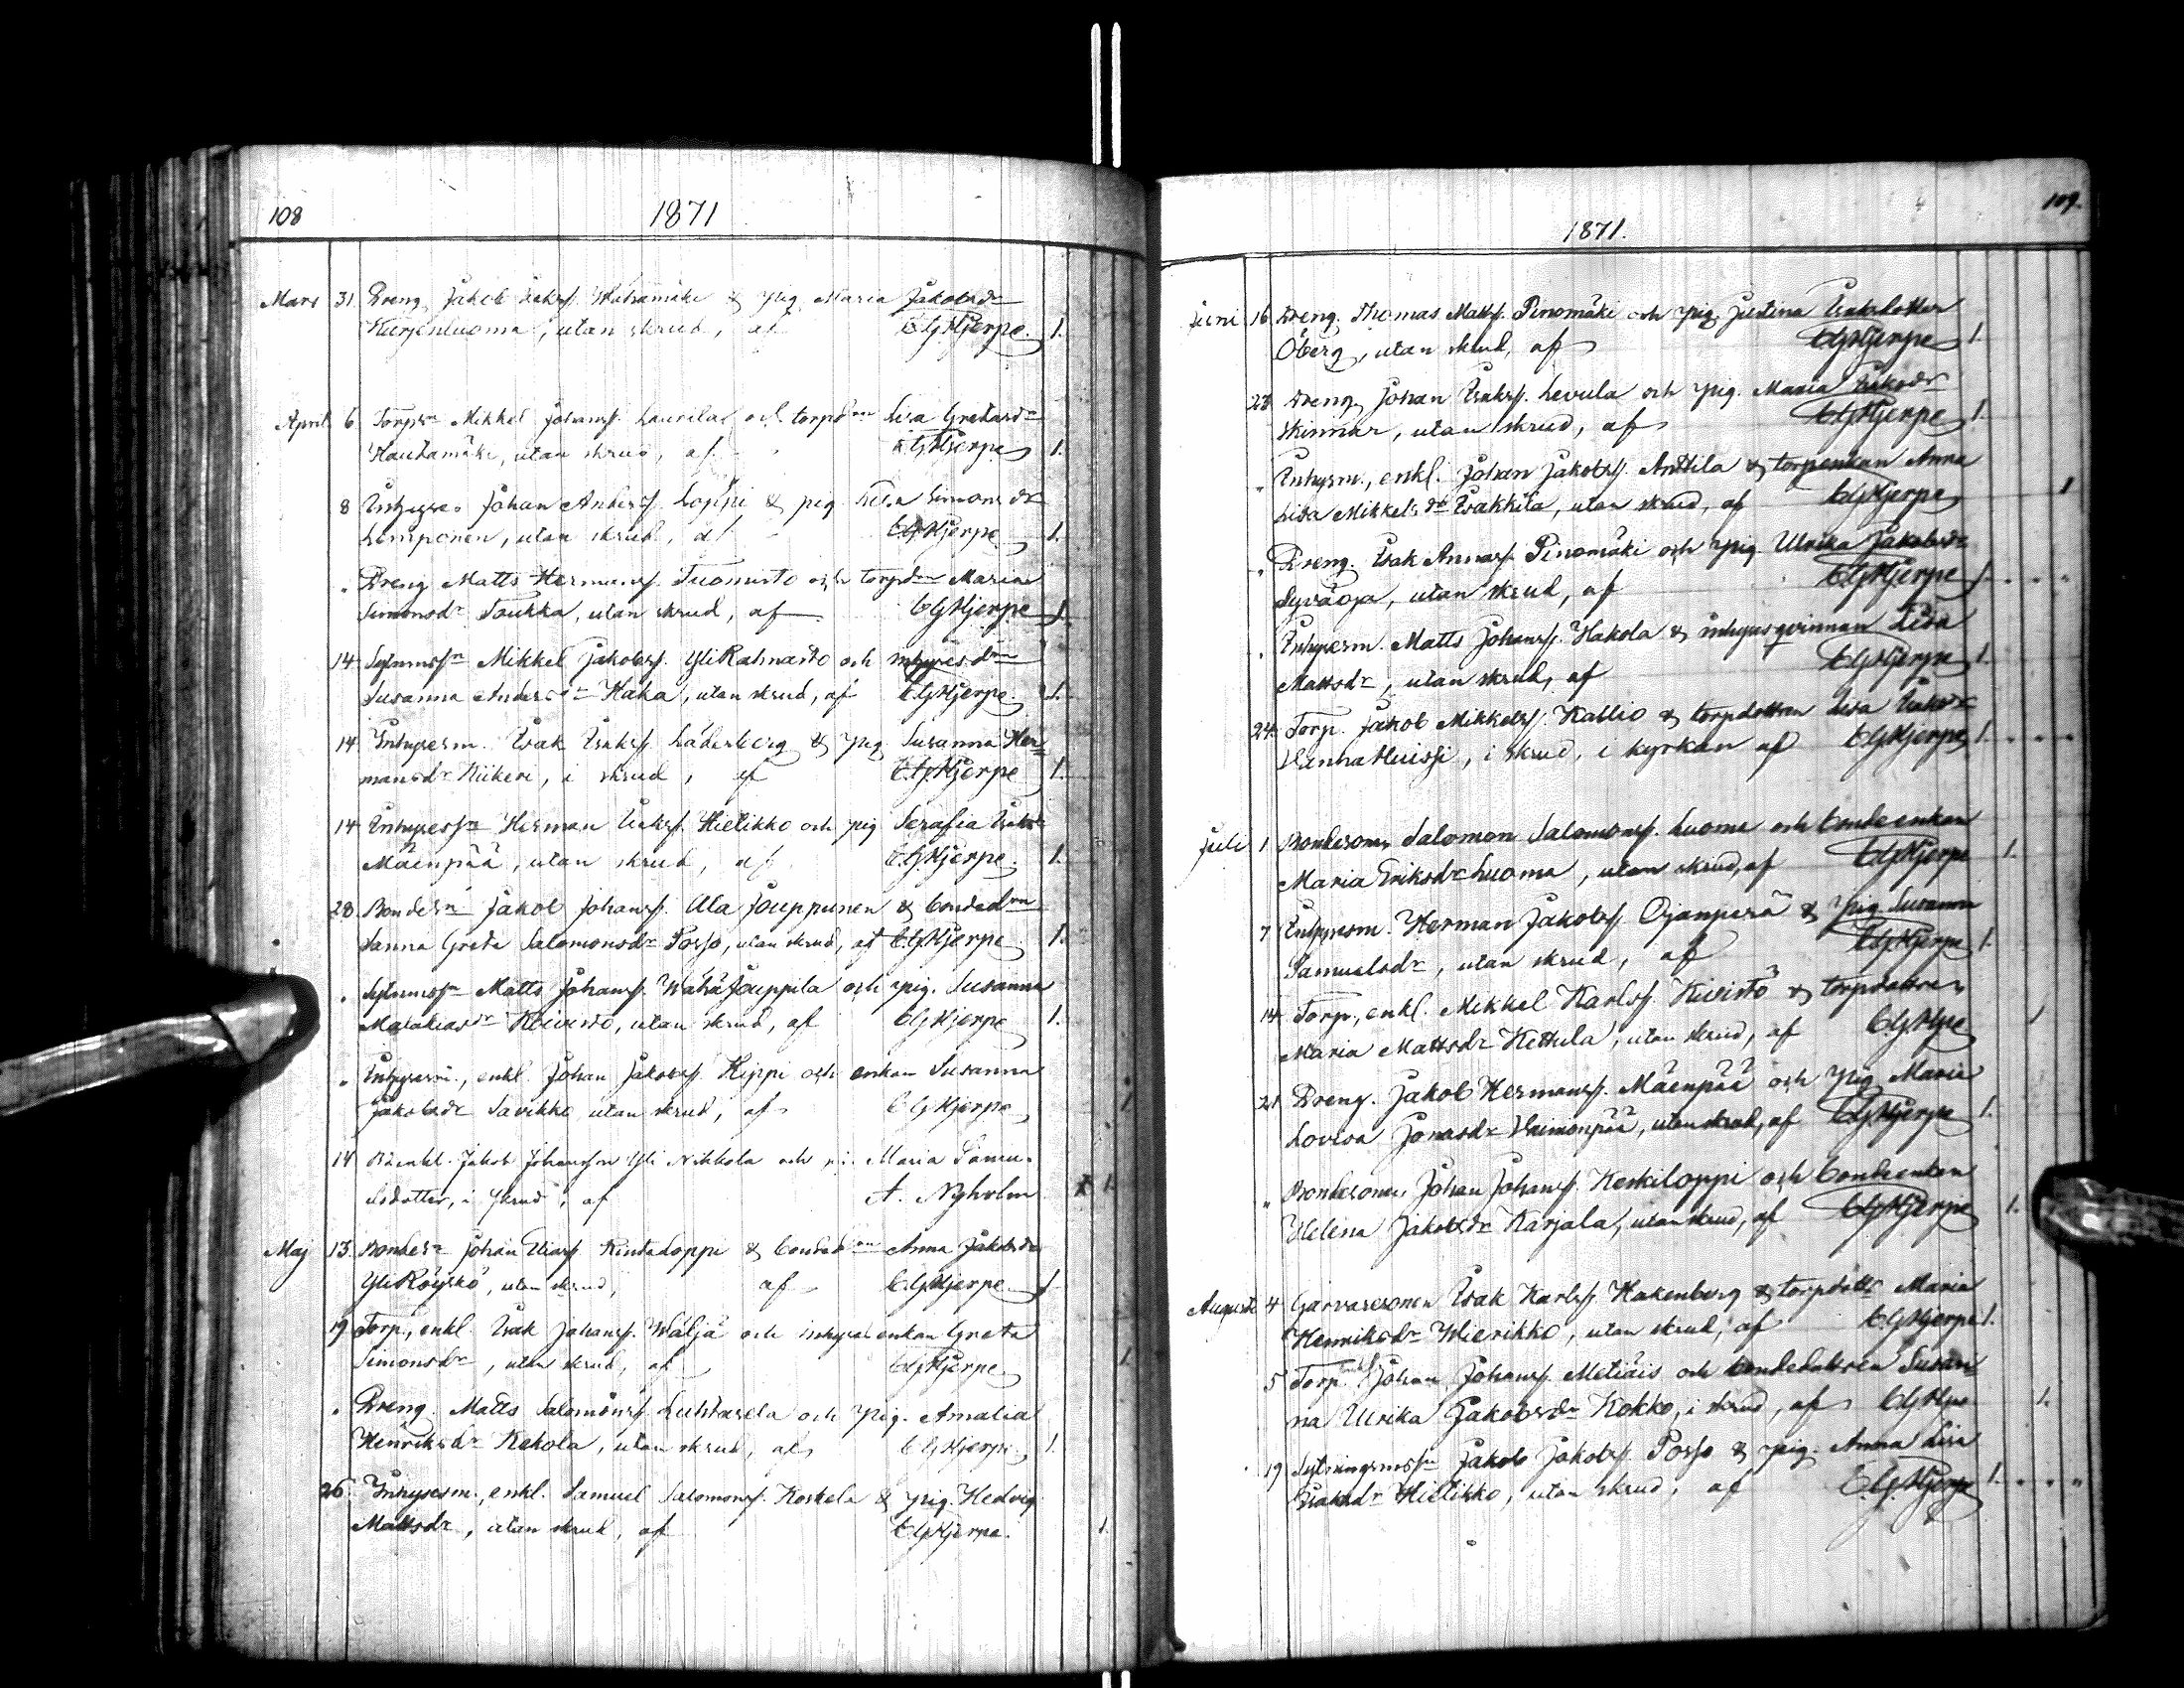 108
1871
Mars 31 Dreng Jakob Isaksf. & pig Maria Jakobsdr
Kurjenluoma, utan skrud, af CGHjerpe. 1.
April 6 Torps. Mikkel Johansf. Laurila och torpdrn Lisa Gretasdr
Hautamäki, utan skrud, af CGHjerpe 1.
8 Johan Andersf. Loppi & pig Simonsdr
Lemponen, utan skrud, af CGHjerpe 1.
" Dreng Matts Hermansf. Tuomisto och torpdrn Maria
Simonsdr Toukka, utan skrud, af CGHjerpe 1.
14 Mikkel Jakobsf. YliRahnasto och inhysesdrn
Susanna Andersdr Kaka, utan skrud, af CGHjerpe. 1.
14 Inhysesm. Isak Isaksf. Läderberg & pig Susanna Her-
mansdr Kiikeri, i skrud, af CGHjerpe 1.
14 Herman Isaksf. Hietikko och pig Serafia Isaksdr
Mäenpää, utan skrud, af C.G.Hjerpe. 1.
28 Jakob Johansf. Ala Jouppunen & bondedrn
Sanna Greta Salomonsdr Posso, utan skrud, af CGHjerpe 1.
" Matts Johansf. WähäJouppila och pig. Susanna
Malakiasdr Koivisto, utan skrud, af CGHjerpe 1.
" Inhysesm., enkl. Johan Jakobsf. Kippi och enkan Susanna
Jakobsdr Savikko utan skrud, af CGHjerpe 1
14 Jakob Johansson Yli Nikkola och pi. Maria Samu-
elsdotter, i skrud, af A. Nyholm 1
Maj 13. Johan Eliasf. Rintaloppi & bondedrn Anna Jakobsdr
YliRöyskö, utan skrud, af CGHjerpe 1
19 Torp., enkl. Isak Johansf. Wäljä och inhysesenkan Greta
Simonsdr, utan skrud, af CGHjerpe 1
" Dreng. Matts Salomonsf. Luhtasela och pig. Amalia
Henriksdr Kekola, utan skrud, af CGHjerpe 1.
26 Inhysesm., enkl. Samuel Salomonsf. Koskela & pig. Hedvig
Mattsdr, utan skrud, af CGHjerpe. 1.
109.
1871.
Juni 16 Dreng. Thomas Mattsf. Pinomäki och pig. Justina Isaksdotter
Öberg, utan skrud, af CGHjerpe 1.
23 Dreng Johan Isaksf. Levula och pig. Maria Isaksdr
Skinnar, utan skrud, af CGHjerpe 1.
" Inhysm., enkl. Johan Jakobsf. Anttila & torpenkan Anna
Lisa Mikkelsdr Isakkila, utan skrud, af CGHjerpe 1
" Dreng. Isak Annasf. Pinomäki och pig Ulrika Jakobsdr
Syväoja, utan skrud, af CGHjerpe 1.
" Inhysesm. Matts Johansf. Hakola & inhysesqvinnan Lisa
Mattsdr, utan skrud, af CGHjerpe 1.
24. Torp. Jakob Mikkelsf. Kallio & torpdottren Lisa Isaksdr
, i skrud, i kyrkan af CGHjerpe 1.
Juli 1 Bondesonen Salomon Salomonsf. Luoma och bondeenkan
Maria Eriksdr Luoma, utan skrud, af CGHjerpe 1.
7 Inhysesm. Herman Jakobsf. Ojanperä & pig. Susanna
Samuelsdr, utan skrud, af CGHjerpe 1.
14 Torp., enkl. Mikkel Karlsf. Kuisto & torpdottren
Maria Mattsdr Kettula, utan skrud, af CGHjpe 1
21 Dreng. Jakob Hermansf. Mäenpää och pig Maria
Lovisa Jonasdr Vaimonpää, utan skrud, af CGHjerpe 1.
" Bondesonen Johan Johansf. Koskiloppi och bondeenkan
Helena Jakobsdr Karjala, utan skrud, af CGHjerpe 1.
Augusti 4 Garvaresonen Isak Karlsf. Hakenberg & torpdottr Maria
Henriksdr Wierikko, utan skrud, af C.G.Hjerpe 1.
5 Torp. enkl. Johan Johansf. Metiäis och bondedottren Susan-
na Ulrika Jakobsdr Kokko, i skrud, af CGHjpe 1.
19 Jakob Jakobsf. Posso & pig. Anna Lisa
Isaksdr Hietikko, utan skrud, af C.G.Hjerpe 1.